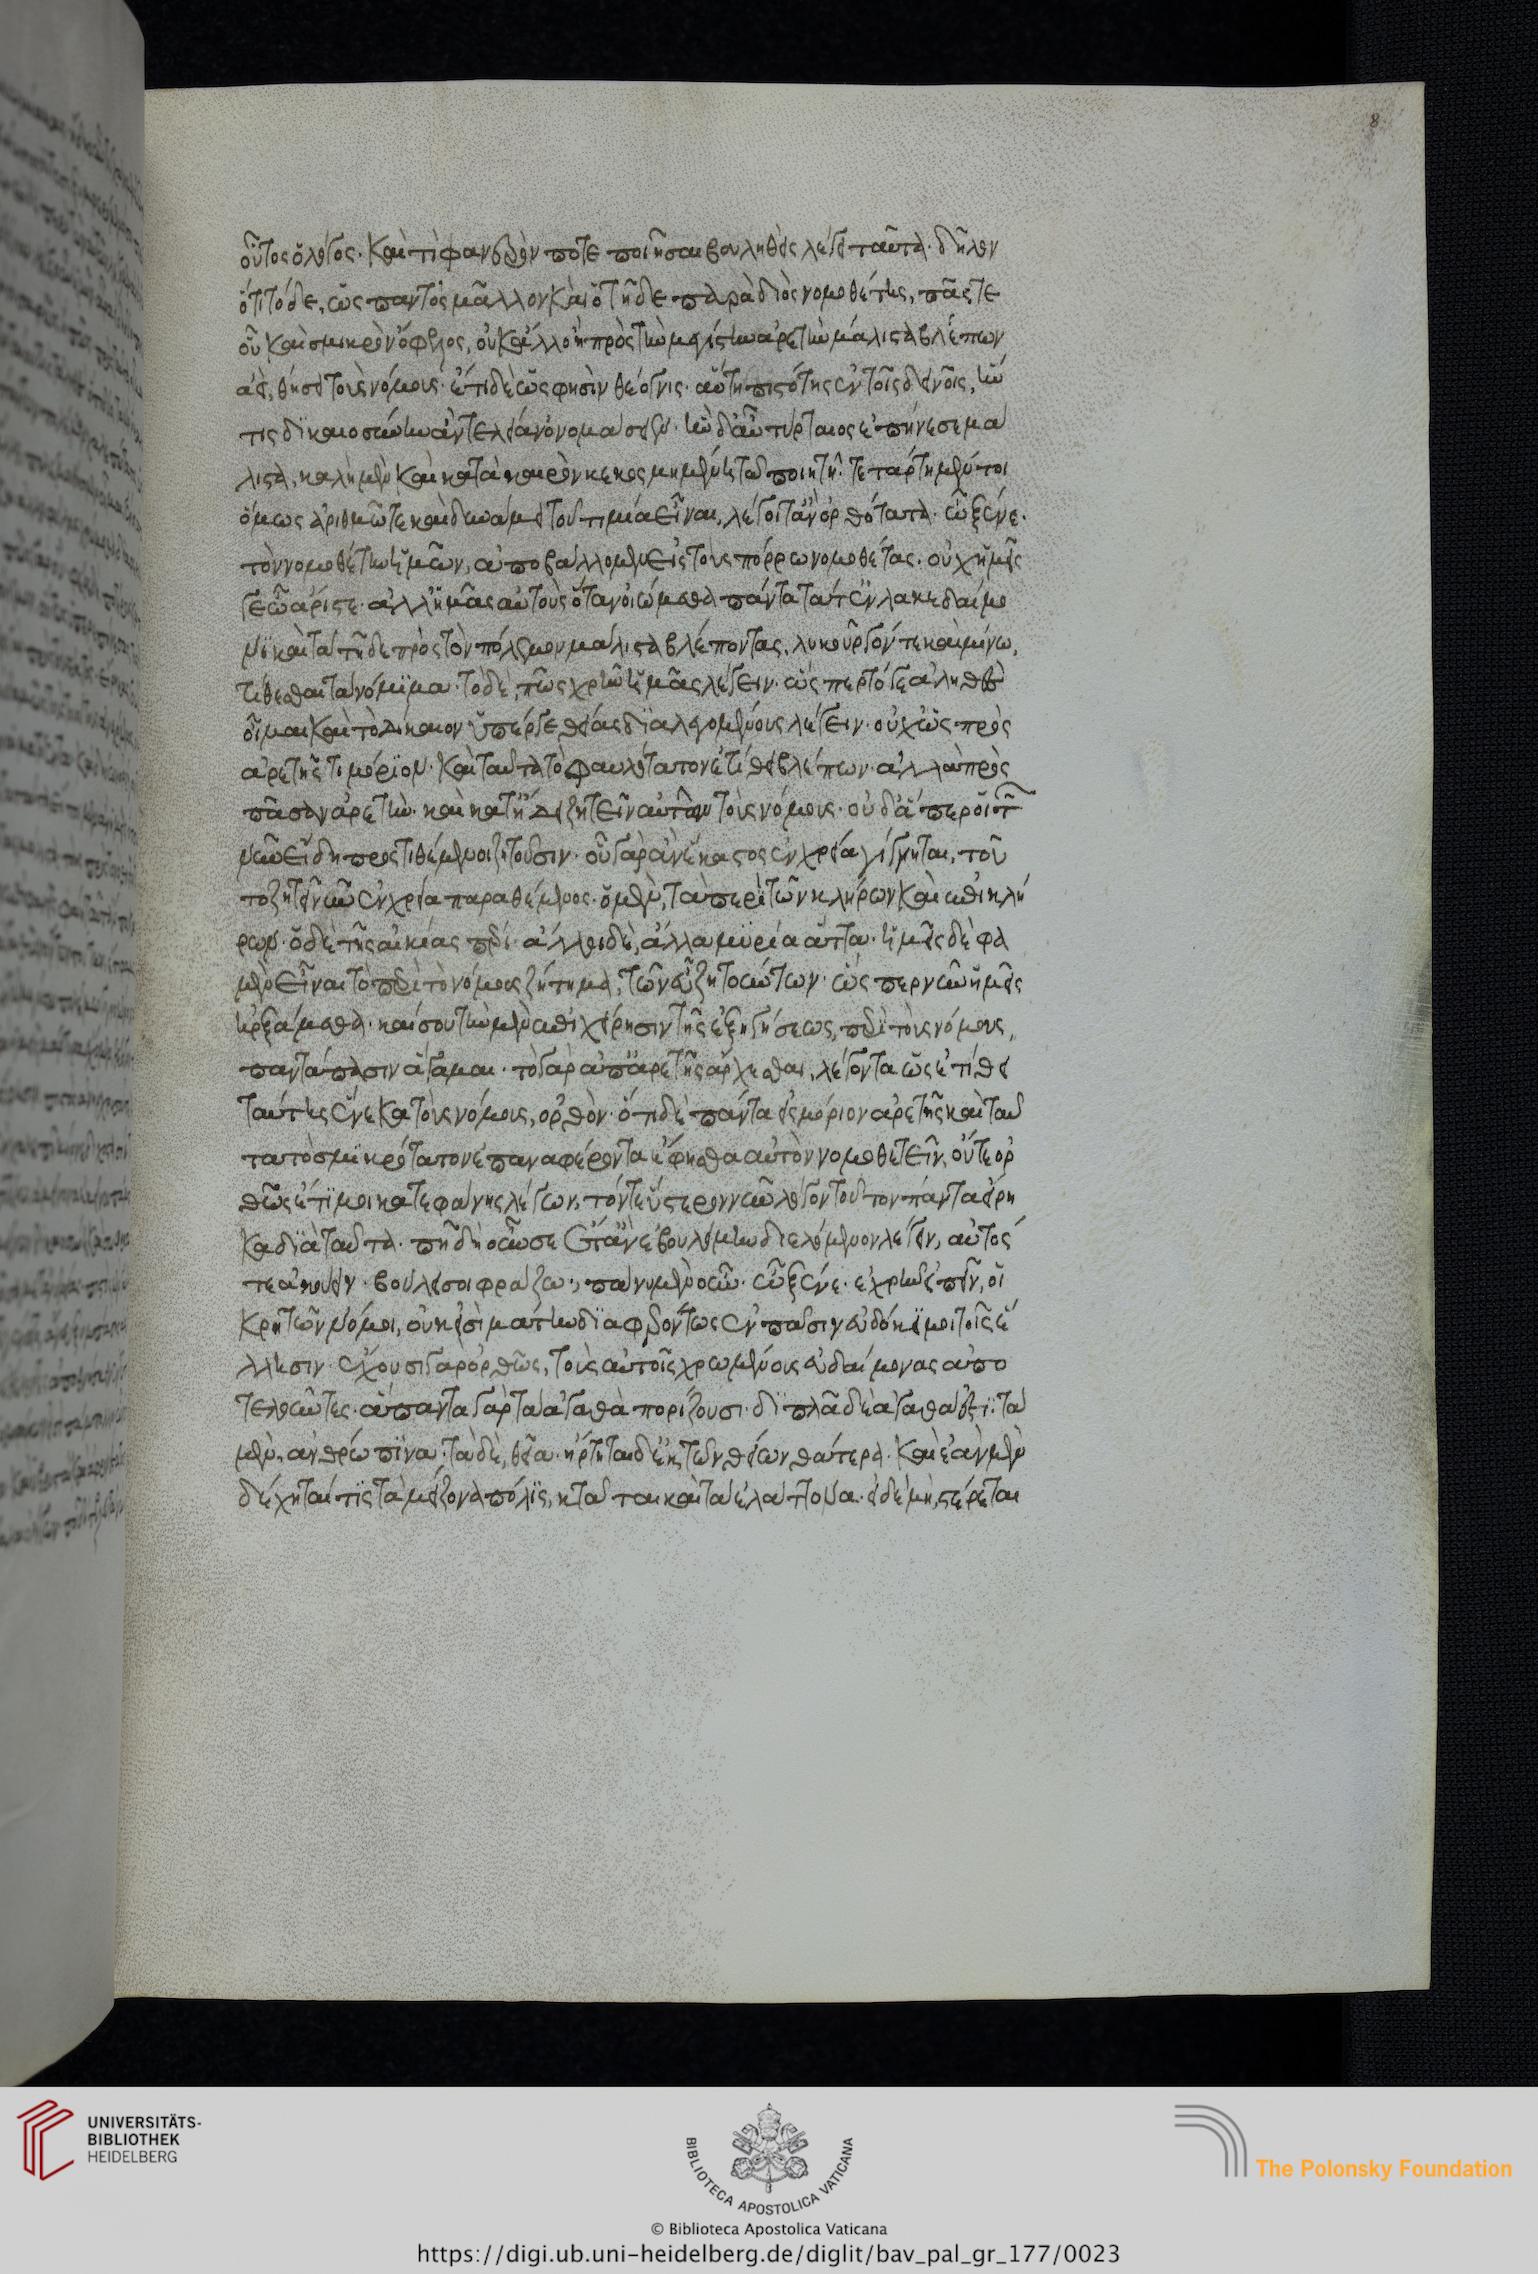 8
οὗτος ὁ λόγος· καὶ τί φανερὸν ποτε ποιῆσαι βουληθεὶς λέγει ταῦτα· δῆλον
ὅτι τόδε, ὡς παντὸς μᾶλλον καὶ ὁ τῇδε παρὰ διὸς νομοθέτης, πᾶς τε
οὗ καὶ σμικρὸν ὄφελος, οὐκ ἄλλο ἢ πρὸς τὴν μεγίστην ἀρετὴν μάλιστα βλέπων
ἀεὶ, θήσει τοὺς νόμους· ἔστι δὲ ὥς φησιν θέογνις· αὕτη πιστότης ἐν τοῖς δεινοῖς, ἥν
τις δικαιοσύνην ἂν τελείαν ὀνομάσειεν· ἣν δ' αὖ τύρταιος ἐπῄνεσε μά
λιστα, καλὴ μὲν καὶ κατὰ καιρὸν κεκοσμημένη τῷ ποιητῇ· τετάρτη μέντοι
ὅμως ἀριθμῷ τε καὶ δυνάμει τοῦ τιμία εἶναι, λέγοιτ' ἂν ὀρθότατα· ὦ ξένε·
τὸν νομοθέτην ἡμῶν, ἀποβάλλομεν εἰς τοὺς πόρρω νομοθέτας· οὐχ ἡμεῖς
γε ὦ ἄριστε· ἀλλ' ἡμᾶς αὐτοὺς ὅταν οἰώμεθα πάντα τά τ' ἐν λακεδαίμο
νι καὶ τὰ τῇδε πρὸς τὸν πόλεμον μάλιστα βλέποντας, λυκοῦργόν τε καὶ μίνω,
τίθεσθαι τὰ νόμιμα· τὸ δὲ, πῶς χρῆν ἡμᾶς λέγειν· ὥσπερ τό γε ἀληθὲς
οἶμαι καὶ τὸ δίκαιον ὑπέρ γε θείας διαλεγομένους λέγειν· οὐχ ὡς πρὸς
ἀρετῆς τι μόριον· καὶ ταῦτα τὸ φαυλότατον ἐτίθει βλέπων· ἀλλὰ πρὸς
πᾶσαν ἀρετὴν· καὶ κατ' εἴδη ζητεῖν αὐτῶν τοὺς νόμους· οὐδ' ἅπερ οἱ τῶν
νῦν εἴδη προστιθέμενοι ζητοῦσιν· οὗ γὰρ ἂν ἕκαστος ἐν χρείᾳ γίγνηται, τοῦ
το ζητεῖ νῦν ἐν χρείᾳ παραθέμενος· ὁ μὲν, τὰ περὶ τῶν κλήρων καὶ ἐπικλή
ρων· ὁ δὲ τῆς αἰκίας πέρι· ἄλλοι δὲ, ἄλλα μυρία ἄττα· ἡμεῖς δὲ φα
μὲν εἶναι τὸ περὶ τὸ νόμους ζήτημα, τῶν εὖ ζητούντων· ὥσπερ νῦν ἡμεῖς
ἠρξάμεθα· καί σου τὴν μὲν ἐπιχείρησιν τῆς ἐξηγήσεως, περὶ τοὺς νόμους,
παντάπασιν ἄγαμαι· τὸ γὰρ ἀπ' ἀρετῆς ἄρχεσθαι, λέγοντα ὡς ἐτίθει
ταύτης ἕνεκα τοὺς νόμους, ὀρθὸν· ὅτι δὲ πάντα εἰς μόριον ἀρετῆς καὶ ταῦ
τα τὸ σμικρότατον ἐπαναφέροντα ἔφησθα αὐτὸν νομοθετεῖν, οὔτε ὀρ
θῶς ἔτι μοι κατεφάνης λέγων, τόν τε ὕστερον νῦν λόγον τοῦτον πάντα εἴρη
κα διὰ ταῦτα· πῇ δὴ οὖν σε ἔτ' ἂν ἐβουλόμην διελόμενον λέγειν, αὐτός
τε ἀκούειν· βούλει σοι φράζω·, πάνυ μὲν οὖν· ὦ ξένε· ἐχρῆν εἰπεῖν, οἱ
κρητῶν νόμοι, οὐκ εἰσὶ μάτην διαφερόντως ἐν πᾶσιν εὐδόκιμοι τοῖς ἕ
λλησιν· ἔχουσι γὰρ ὀρθῶς, τοὺς αὐτοῖς χρωμένους εὐδαίμονας ἀπο
τελοῦντες· ἅπαντα γὰρ τὰ ἀγαθὰ πορίζουσι· διπλᾶ δὲ ἀγαθά ἐστι· τὰ
μὲν, ἀνθρώπινα· τὰ δὲ, θεῖα· ἤρτηται δ' ἐκ τῶν θείων θάτερα· καὶ ἐὰν μὲν
δέχηταί τις τὰ μείζονα πόλις, κτᾶται καὶ τὰ ἐλάττονα· εἰ δὲ μὴ, στέρεται
UNIVERSITÄTS-
BIBLIOTHEK
HEIDELBERG
BIBLIOTECA APOSTOLICA VATICANA
The Polonsky Foundation
© Biblioteca Apostolica Vaticana
https://digi.ub.uni-heidelberg.de/diglit/bav_pal_gr_177/0023